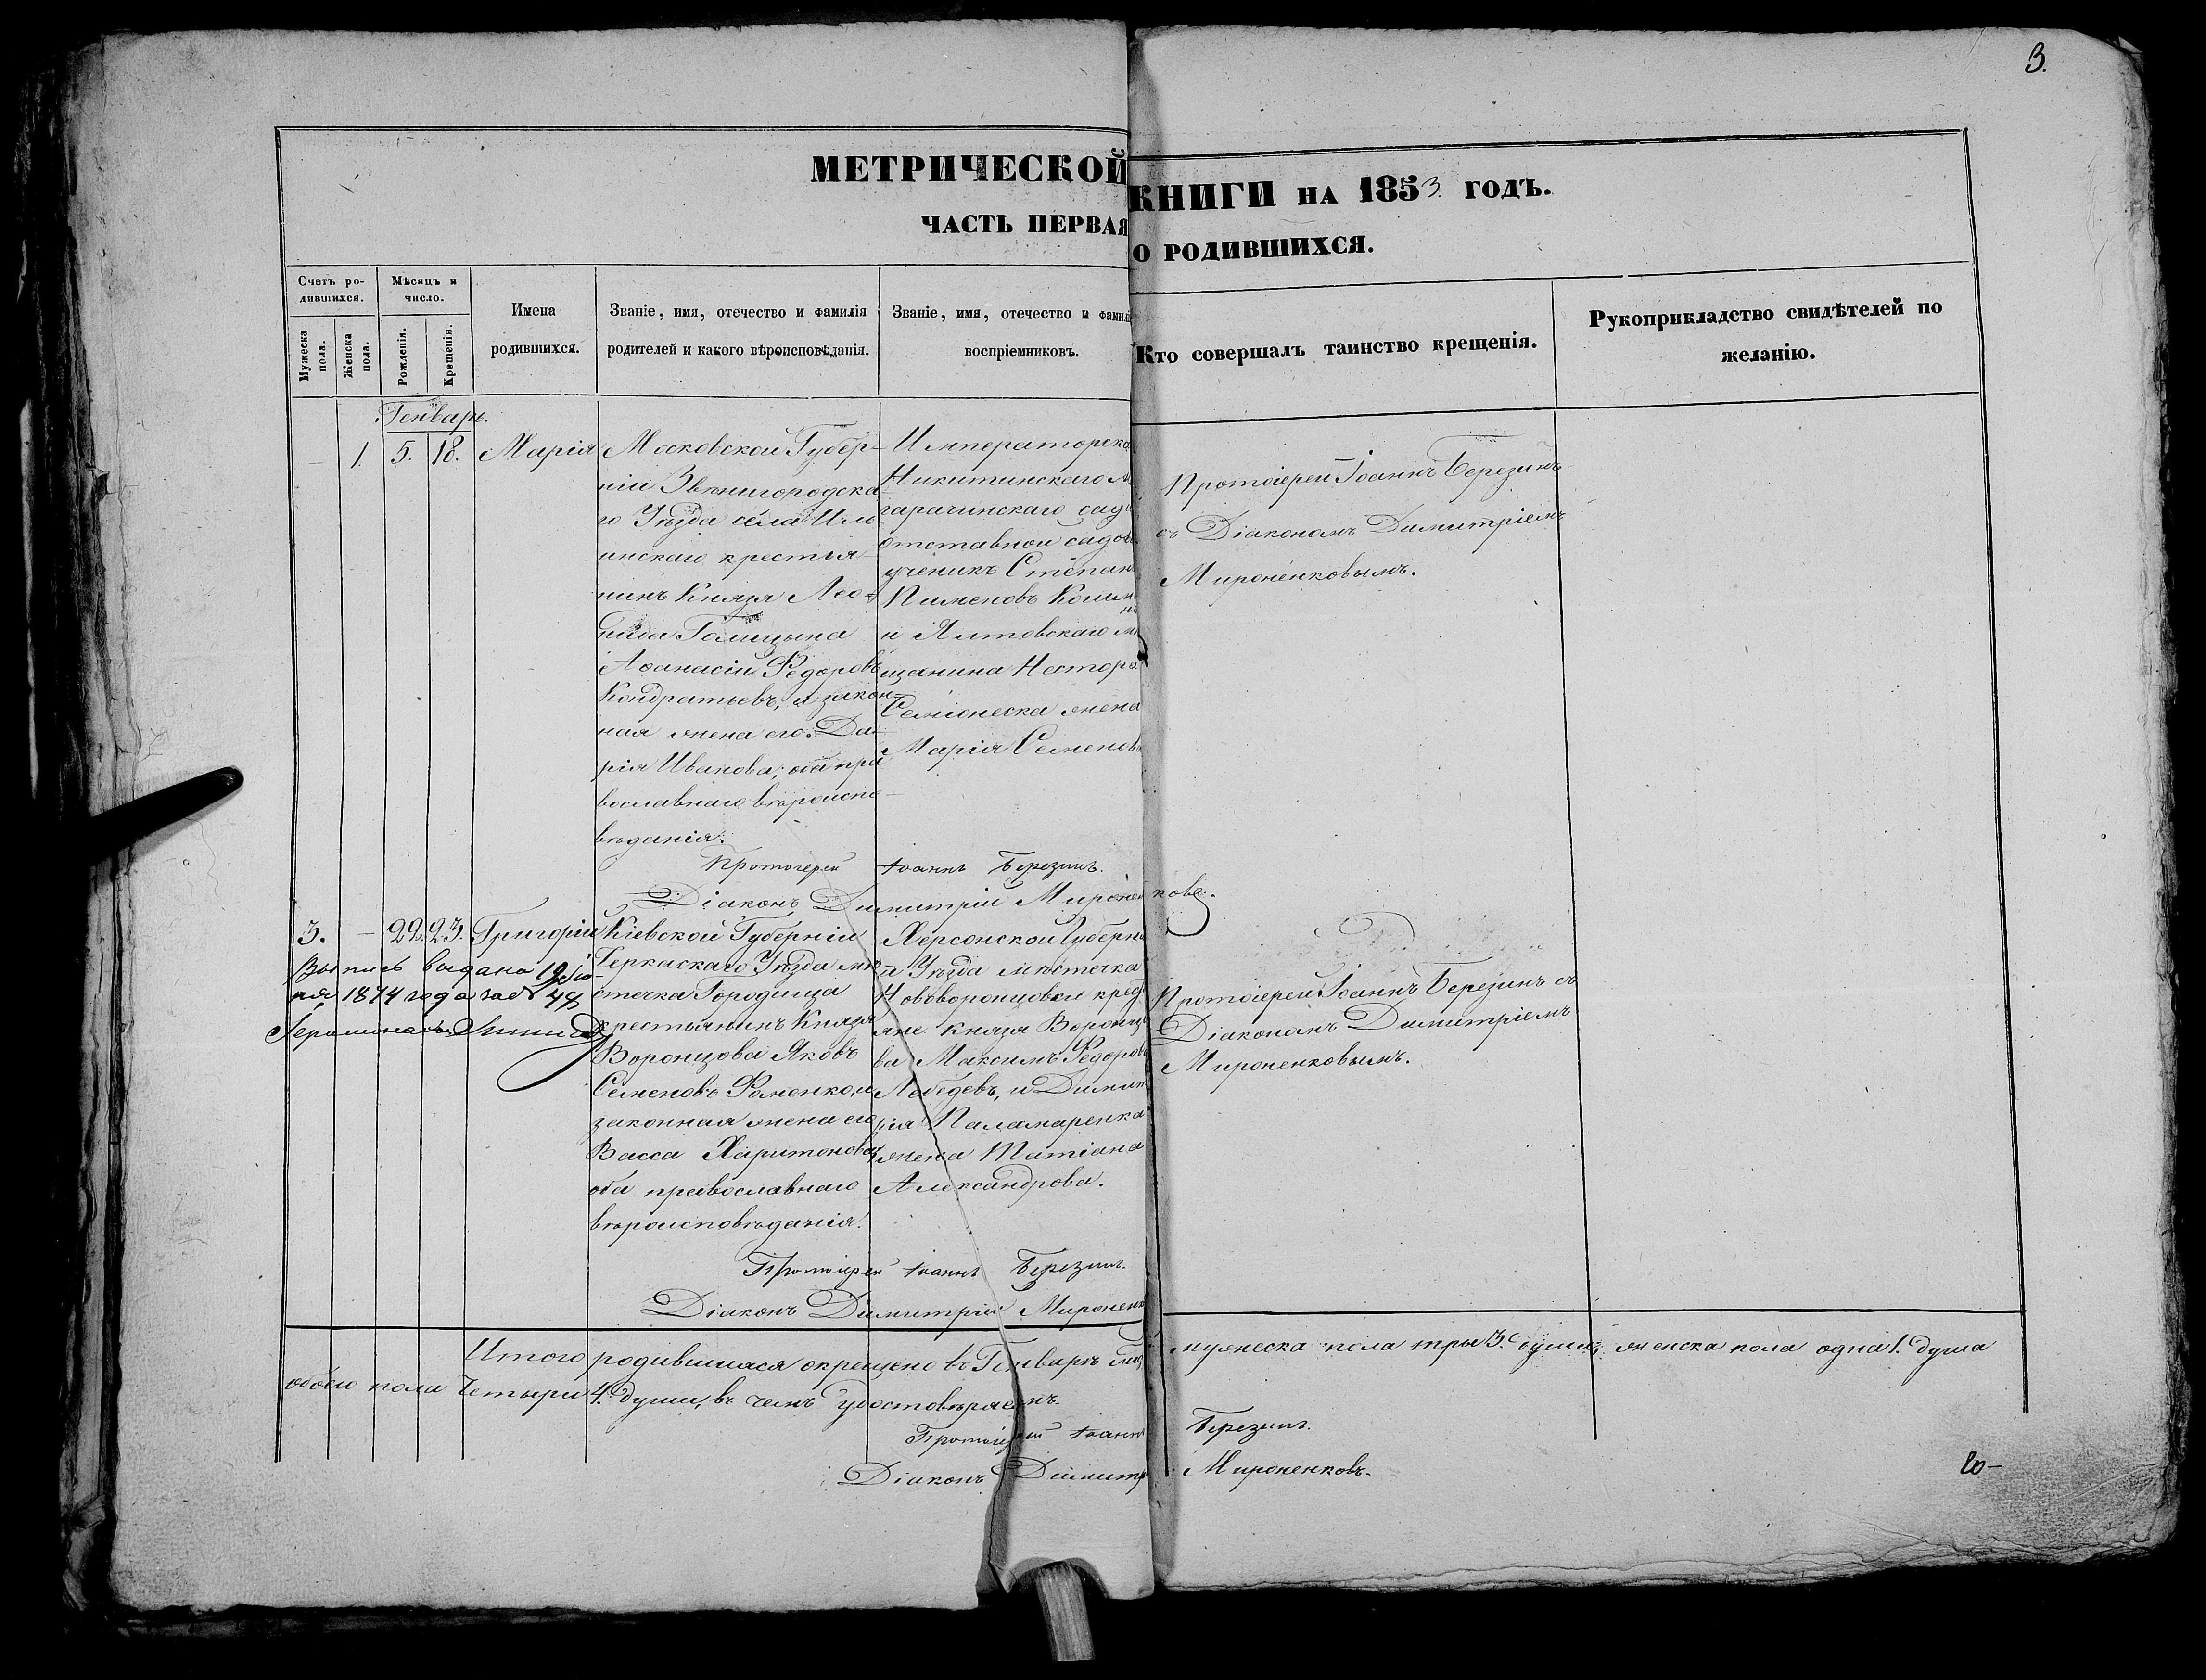 3.
МЕТРИЧЕСКОЙ КНИГИ НА 1853 ГОДЪ.
ЧАСТЬ ПЕРВАЯ О РОДИВШИХСЯ.
Счетъ ро-
дившихся.
Мужеска пола.
Женска пола.
Мѣсяцъ и
число.
Рожденія.
Крещенія.
Имена
родившихся.
Званіе, имя, отечество и фамилія
родителей и какого вѣроисповѣданія.
Званіе, имя, отечество и фамилі
воспріемниковъ.
Кто совершалъ таинство крещенія.
Рукоприкладство свидѣтелей по
желанію.
Генварь.
1. 5. 18. Марія
Московской Губер-
ніи Звѣнигородска-
го Уѣзда села Иль-
инскаго крестья-
нинъ Князя Лео-
нида Голицына
Аѳанасій Ѳедоровъ
Кондратьевъ, и закон-
ная жена его Да-
рія Иванова; оба пра
вославнаго вѣроиспо-
вѣданія.
Императорска
Никитинскаго М
гарачинскаго сад
отставной садов
ученикъ Степан
Пименовъ
и Ялтовскаго мѣ
щанина Нестора
жена
Марія Семенова
Протоіерей Іоаннъ Березинъ
съ Діакономъ Димитріемъ
Мироненковымъ.
Протоіерей Іоаннъ Березинъ.
Діаконъ Димитрій Мироненковъ.
3. – 22. 23. Григорій
Выпись выдана 19
1874 года за № 48
Кіевской Губерніи
Черкаскаго Уѣзда мѣ-
стечка Городища
крестьянинъ Князя
Воронцова Яковъ
Семеновъ Фоменко, и
законная жена его
Васса Харитонова,
оба православнаго
вѣроисповѣданія.
Херсонской Губерні
и Уѣзда мѣстечка
Нововоронцовки крест
яне Князя Воронцо
ва Максимъ Ѳедоров
Лебедевъ, и Димит
рія Паламаренка
жена Татіана
Александрова.
Протоіерей Іоаннъ Березинъ съ
Діакономъ Димитріемъ
Мироненковымъ.
Протоіерей Іоаннъ Березинъ.
Діаконъ Димитрій Мироненк
Итого родившихся окрещено въ Генварѣ мужеска пола три 3. души, женска пола одна 1. душа
обоего пола четыри 4. души, въ чемъ удостовѣряемъ.
Протоіерей Іоаннъ Березинъ.
Діаконъ Димитр Мироненковъ.